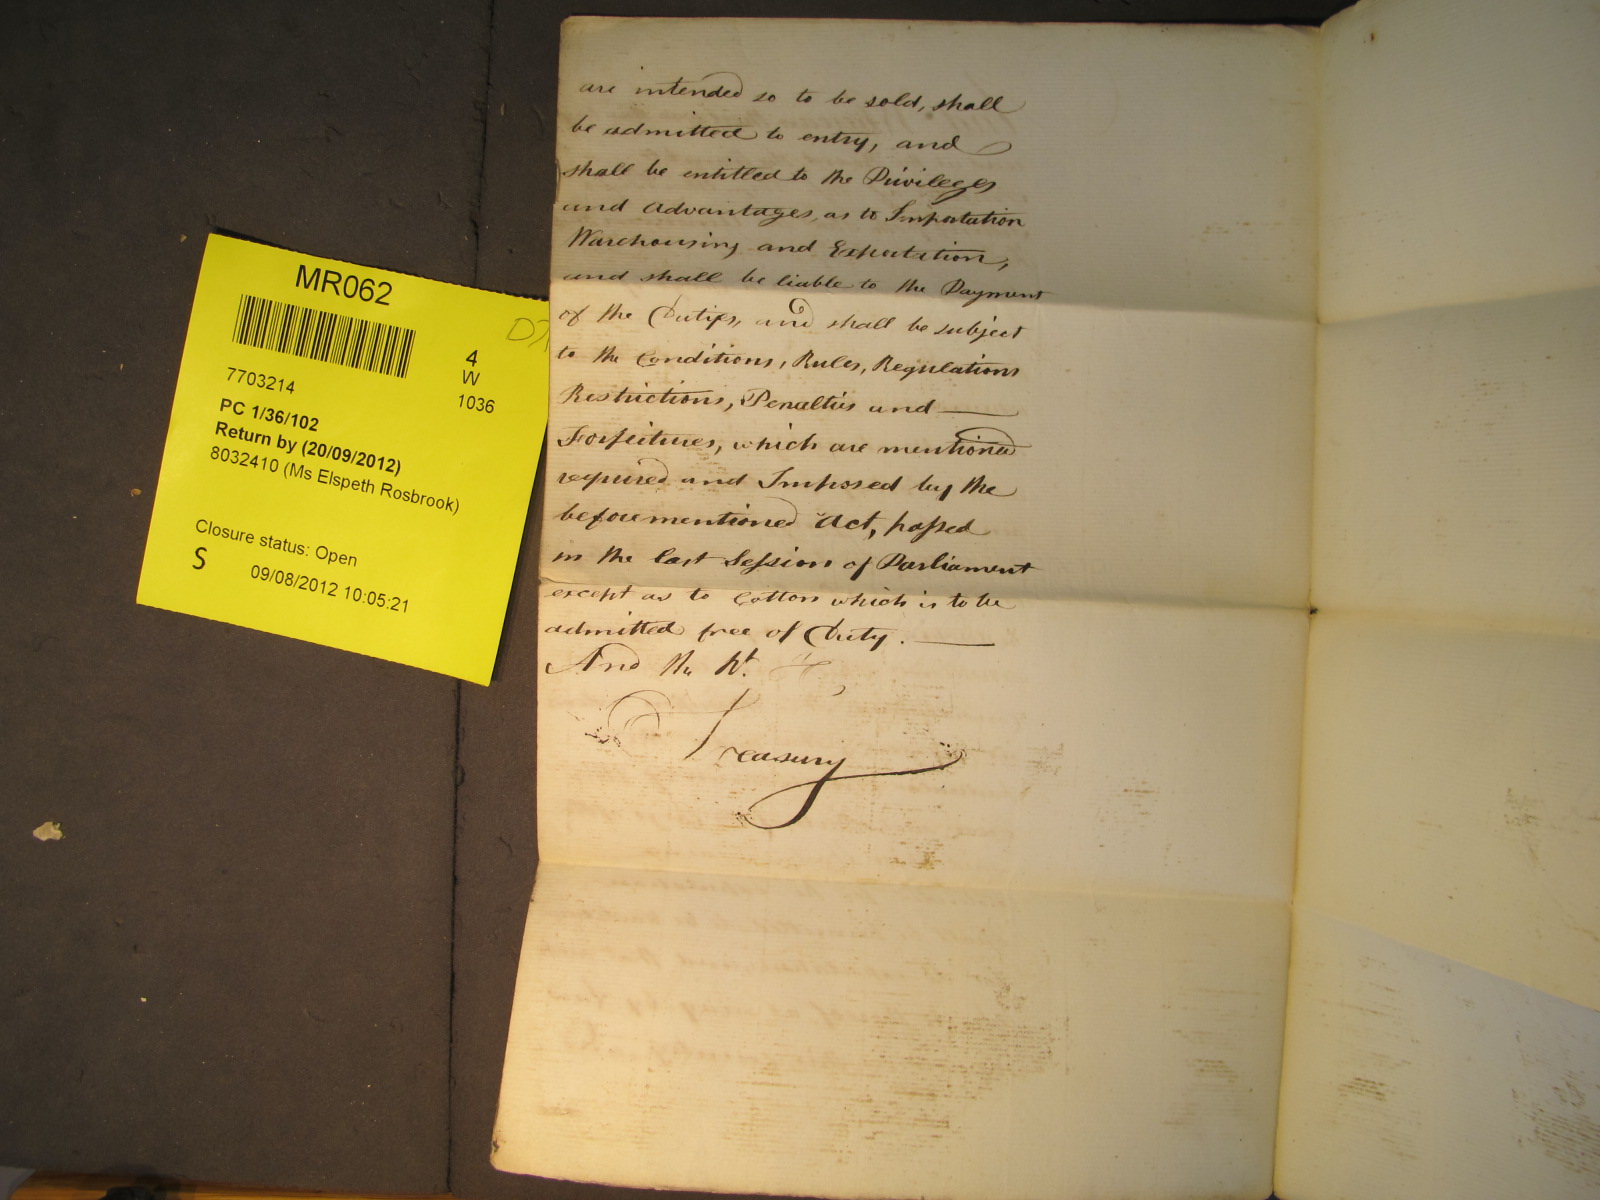 MR062
7703214
4
W
1036
PC 1/36/102
Return by (20/09/2012)
8032410 (Ms Elspeth Rosbrook)
Closure status: Open
S
09/08/2012 10:05:21
are intended so to be sold, shall
be admitted to entry, and
shall be entitled to the Privileges
and Advantages, as to Importation
Warehousing and Exportation,
and shall be liable to the Payment
of the Duties, and shall be subject
to the Conditions, Rules, Regulations
Restrictions, Penalties and
Forfeitures, which are mentioned
required and Imposed by the
beforementioned Act, passed
in the last Session of Parliament
except as to Cotton which is to be
admitted free of Duty.
And the Rt.
Treasury